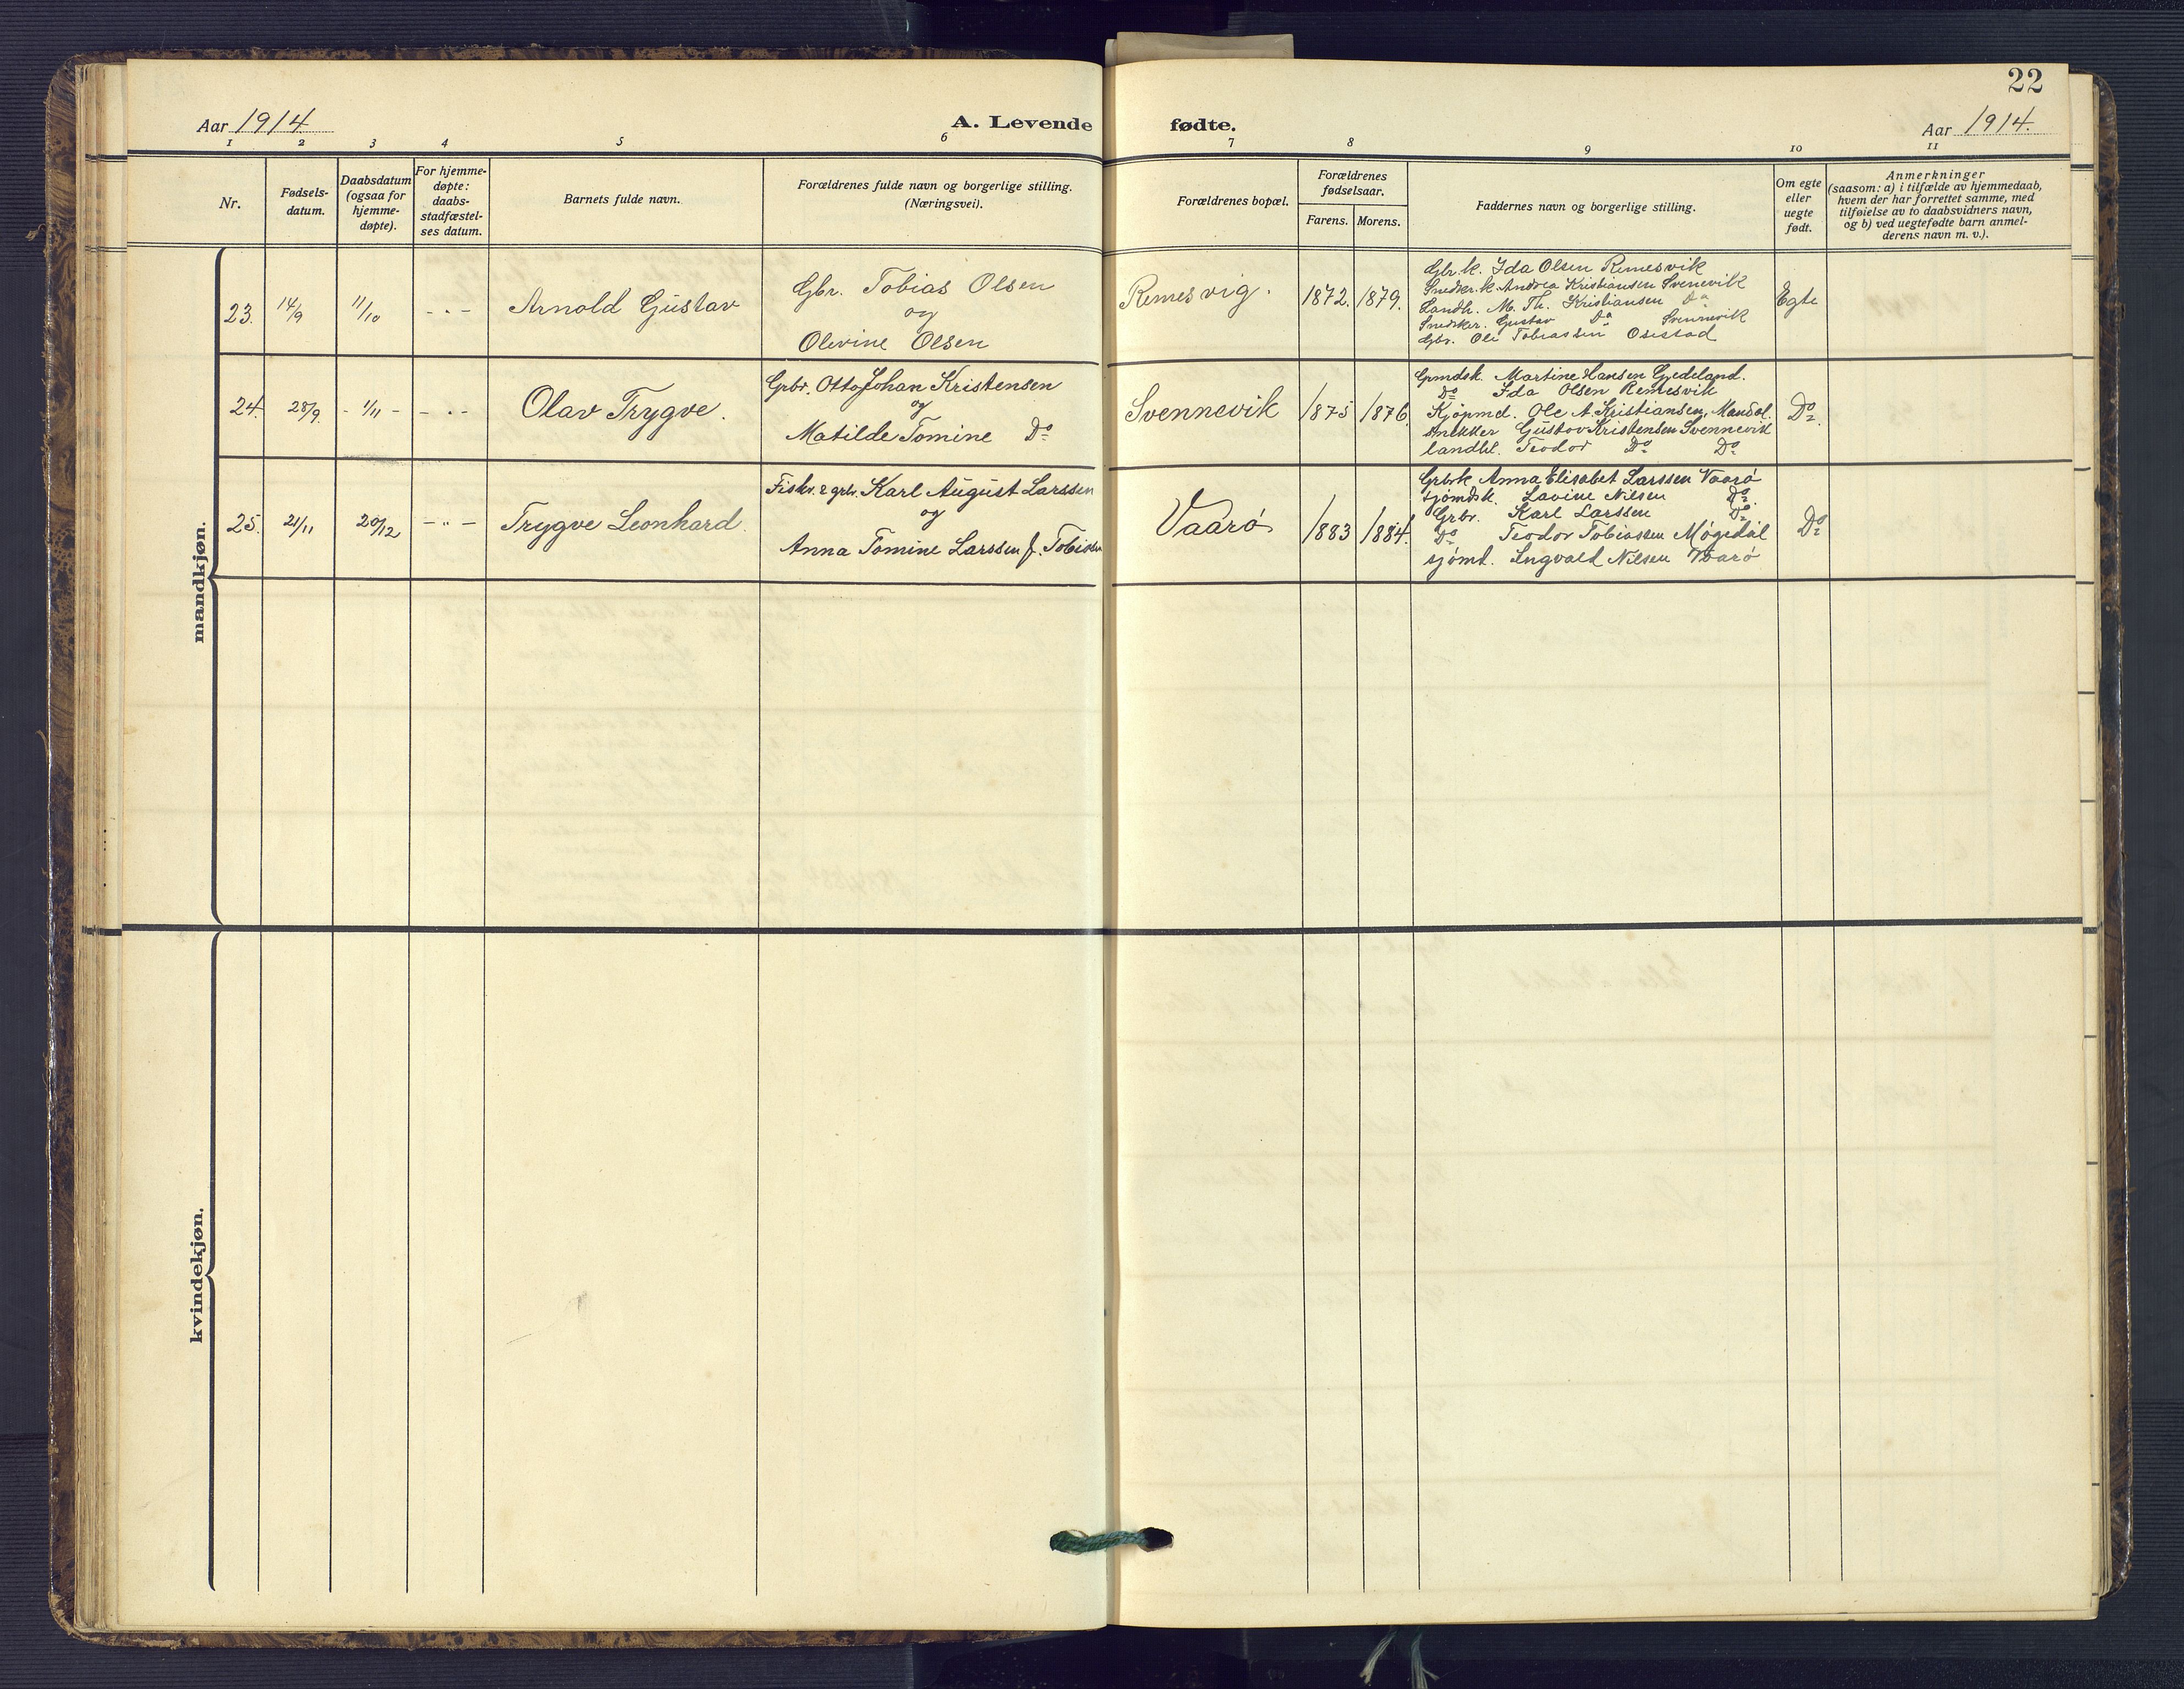 22
Aar 1914. A. Levende fødte. Aar 1914.
1 2 3 4 5 6 7 8 9 10 11
Nr.
Fødsels-
datum.
Daabsdatum
(ogsaa for
hjemme-
døpte).
For hjemme-
døpte:
daabs-
stadfæstel-
ses datum.
Barnets fulde navn.
Forældrenes fulde navn og borgerlige stilling.
(Næringsvei).
Forældrenes bopæl.
Forældrenes
fødselsaar.
Farens. Morens.
Faddernes navn og borgerlige stilling.
Om egte
eller
uegte
født.
Anmerkninger
(saasom: a) i tilfælde av hjemmedaab,
hvem der har forrettet samme, med
tilføielse av to daabsvidners navn,
og b) ved uegtefødte barn anmel-
derens navn m. v.).
mandkjøn.
23. 14/9 11/10 - " - Arnold Gustav
Gbr. Tobias Olsen
og
Olevine Olsen
Remesvig. 1872. 1879.
Gbr.k. Ida Olsen Remesvik
Snedker.k. Andrea Kristiansen Svenevik
Landh. M. Th. Kristiansen Do
Snedker. Gustav Do Svennevik
Gbr. Ole Tobiassen Osestad
Egte
24. 28/9. - 1/11 - - " - Olav Trygve.
Grbr. Otto Johan Kristensen
og
Matilde Tomine Do
Svennevik 1875 1876.
Gpmdsk. Martine Hansen Gjedeland.
Do Ida Olsen Remesvik
Kjøpmd. Ole A. Kristiansen, Mandal.
snekker Gustav Kristensen Svennevik
landhl. Teodor Do Do
Do.
25. 21/11 20/12 - " - Trygve Leonhard.
Fisker & grbr. Karl August Larssen
og
Anna Tomine Larssen f. Tobiassen
Vaarø 1883 1884.
Grbrk Anna Elisabet Larssen Vaarø
sjømdsk. Lavine Nilsen Do.
Grbr. Karl Larssen Do
Do Teodor Tobiassen Møgedal
sjømd. Ingvald Nilsen Vaarø
Do
kvindekjøn.